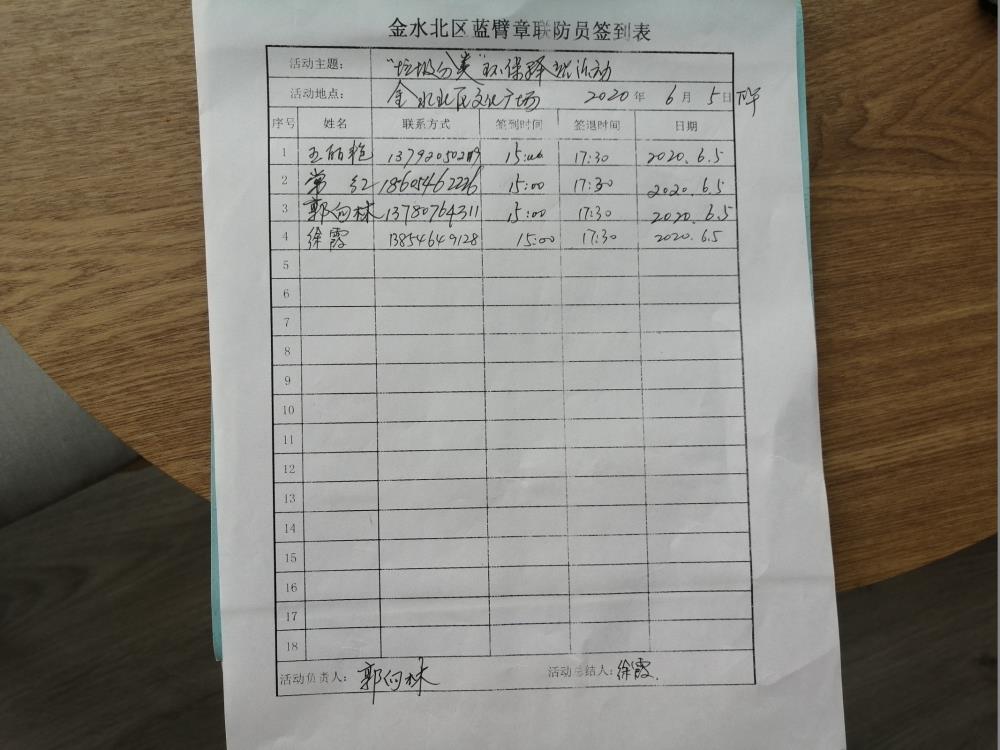 金水北区蓝臂章联防员签到表
活动主题： "垃圾分类"环保驿站活动
活动地点： 金水北区文化广场 2020年 6月 5日 下午
序号 姓名 联系方式 签到时间 签退时间 日期
1 王丽艳 15:00 17:30 2020.6.5
2 常红 18605462226 15:00 17:30 2020.6.5
3 郭向林 13780764311 15:00 17:30 2020.6.5
4 徐霞 13854649128 15:00 17:30 2020.6.5
5
6
7
8
9
10
11
12
13
14
15
16
17
18
活动负责人： 郭向林 活动总结人： 徐霞.